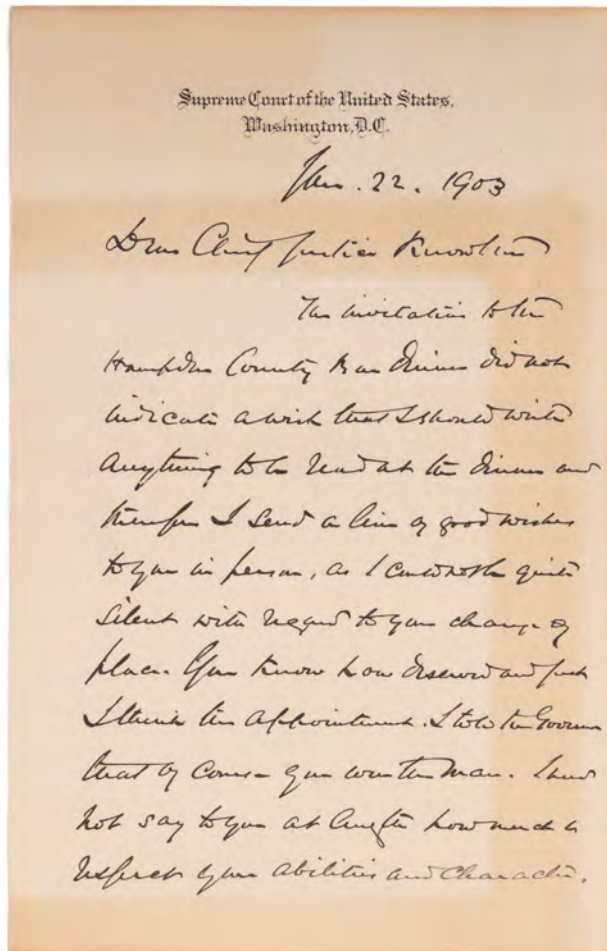 Supreme Court of the United States,
Washington, D.C.
Jan. 22. 1903
Dear Chief Justice Knowlton
The invitation to the
Hampden County Bar Dinner did not
indicate a wish that I should write
anything to be read at the dinner and
therefore I send a line of good wishes
to you in person, as I could not be quite
silent with regard to your change of
place. You know how deserved and just
I think the appointment. I told the Governor
that of course you were the man. I need
not say to you at length how much I
respect your abilities and character.